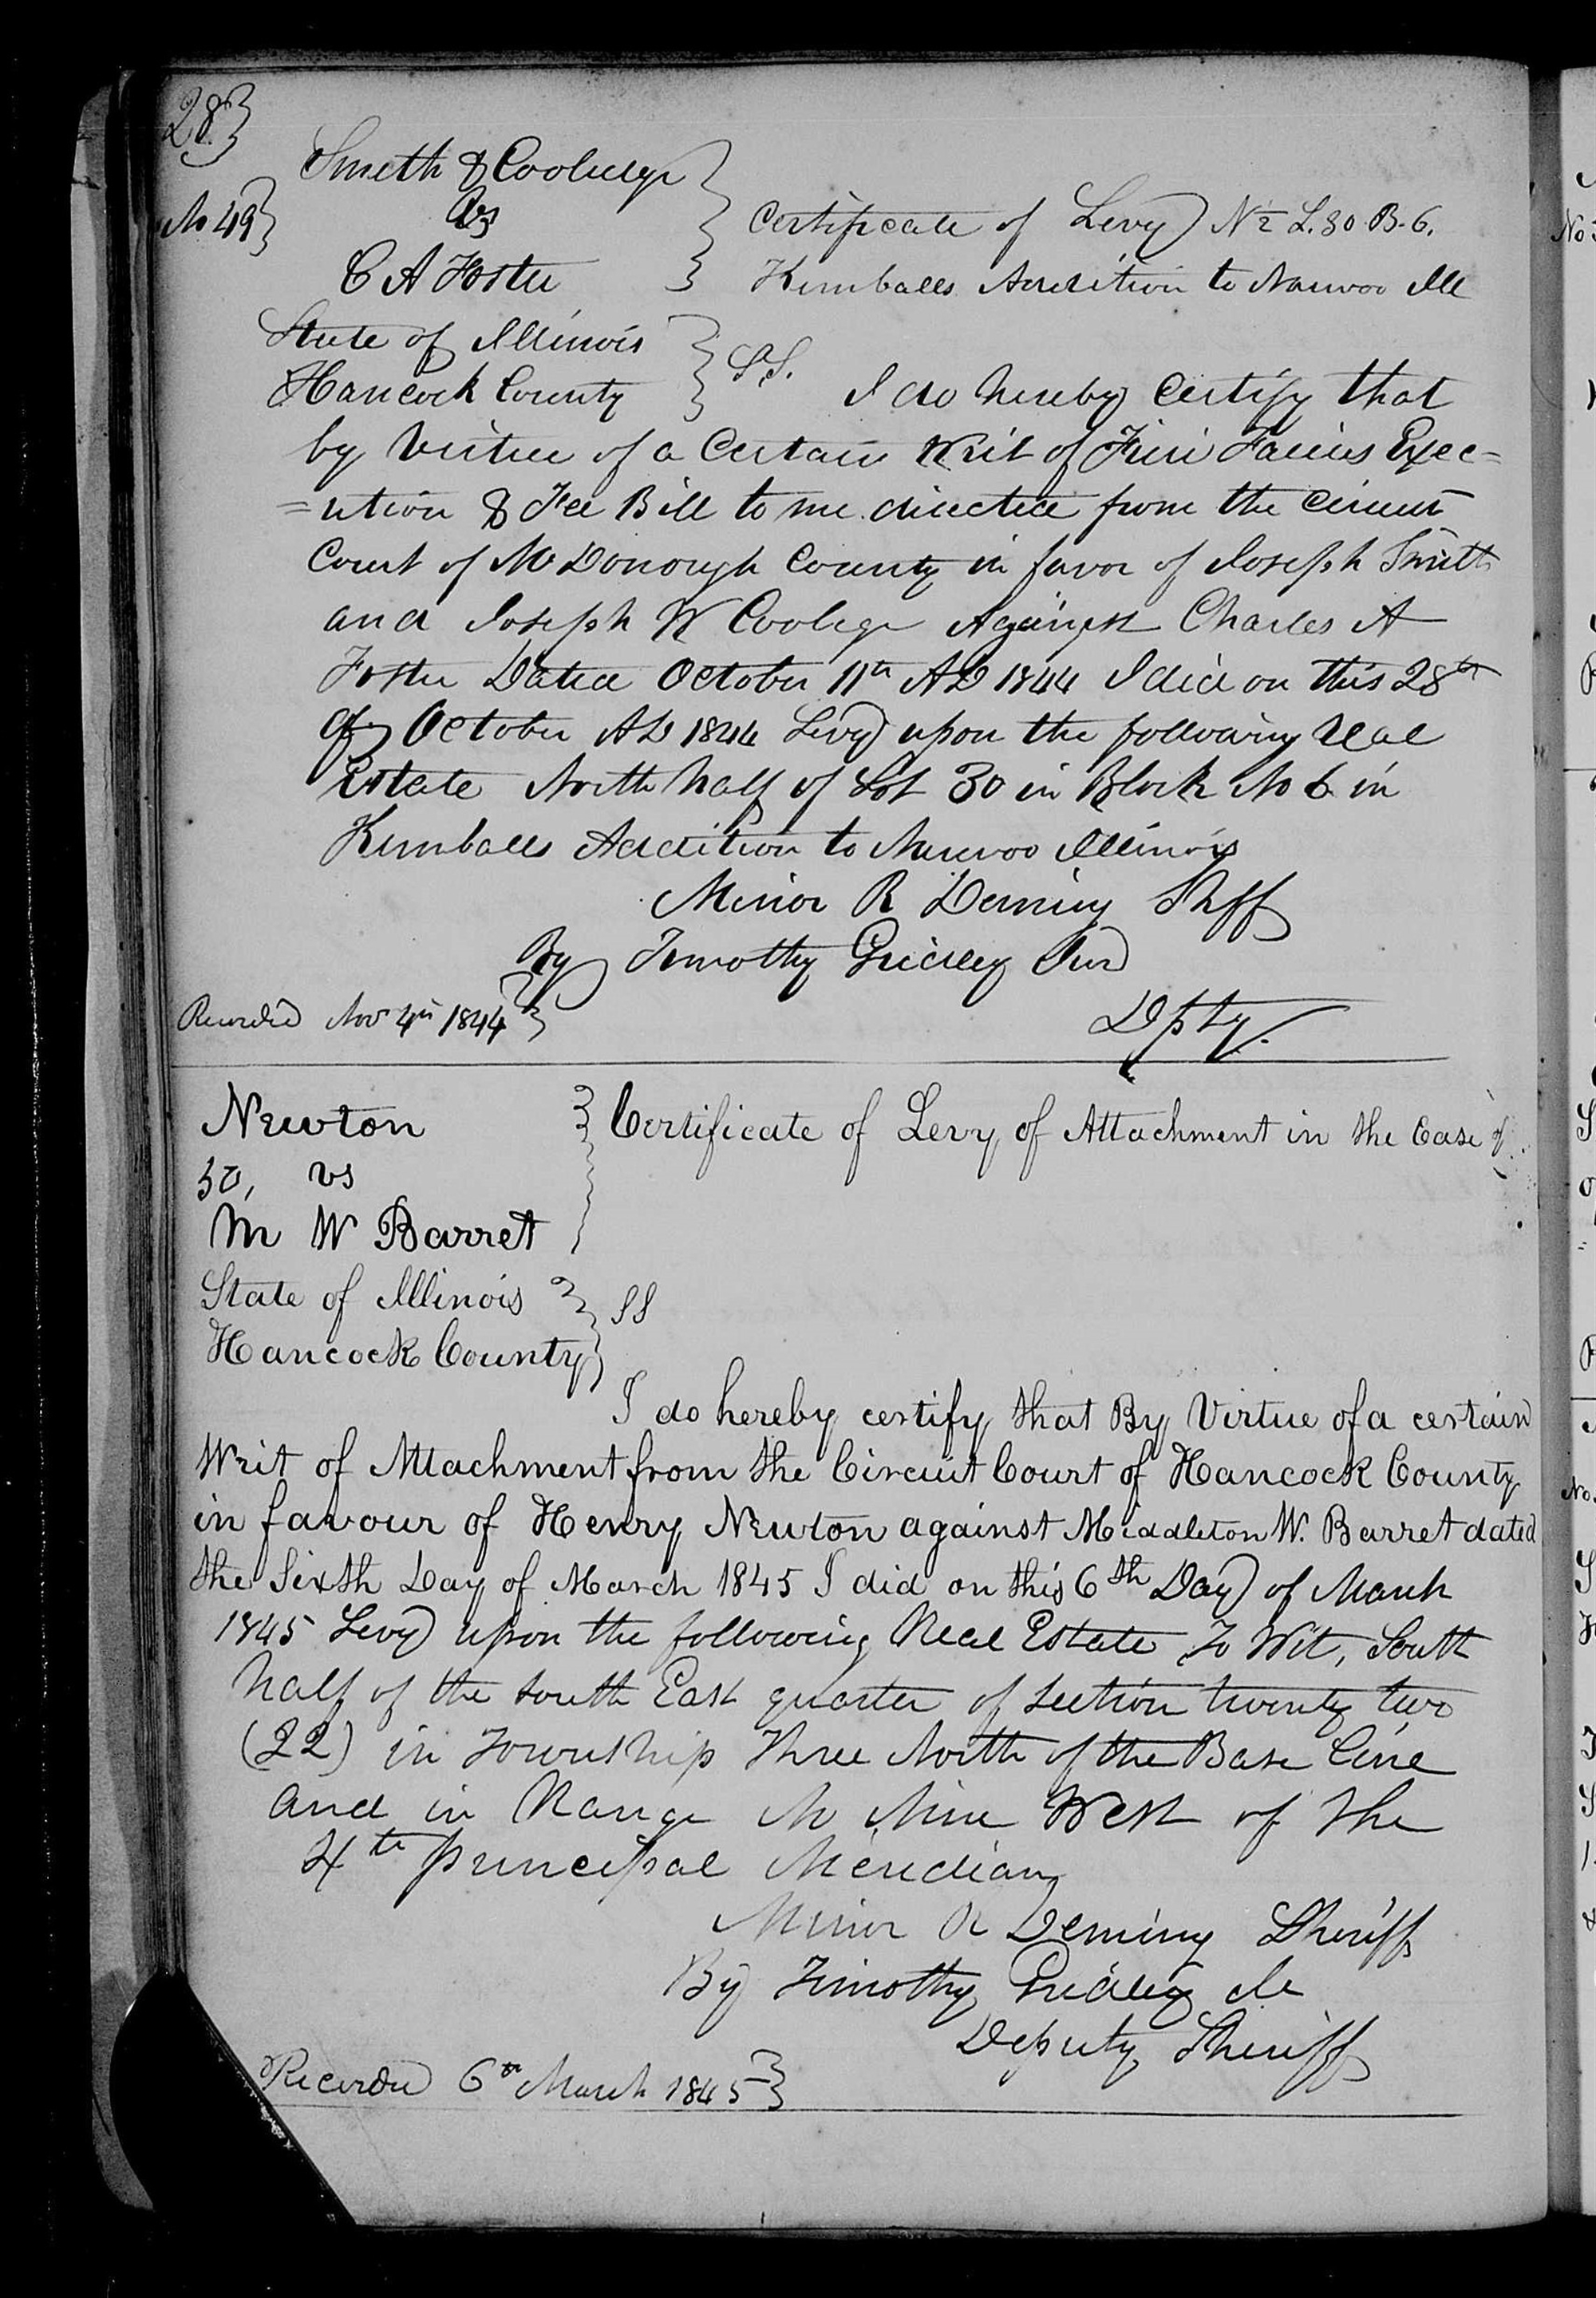 28
Smith & Coolidge
No 49 vs Certificate of Levy N ½ L. 30. B. 6.
C A Foster Kimballs Addition to Nauvoo Ill
State of Illinois
Hancock County SS. I do hereby certify that
by virtue of a Certain Writ of Fieri Facias Exec=
=ution & Fee Bill to me directed from the circuit
Court of McDonough County in favor of Joseph Smith
and Joseph W Coolidge Against Charles A
Foster Dated October 11th AD 1844 I did on this 28th
of October AD 1844 Levy upon the following Real
Estate North half of Lot 30 in Block No 6 in
Kimballs Addition to Nauvoo Illinois
Minor R Deming Shff
By Timothy Gridley Jun
Recorded Nov 4th 1844
Dpty.
Newton Certificate of Levy of Attachment in the Case of
50, vs
M W Barret
State of Illinois SS
Hancock County
I do hereby certify that By Virtue of a certain
Writ of Attachment from the Circuit Court of Hancock County
in favour of Henry Newton against Middleton W. Barret dated
the Sixth Day of March 1845 I did on this 6th Day of March
1845 Levy upon the following Real Estate To Wit, South
half of the South East quarter of Section twenty two
(22) in Township Three North of the Base Line
and in Range No Nine West of the
4th Principal Meridian
Minor R Deming Sheriff
By Timothy Gridley Jr
Deputy Sheriff
Recorded 6th March 1845